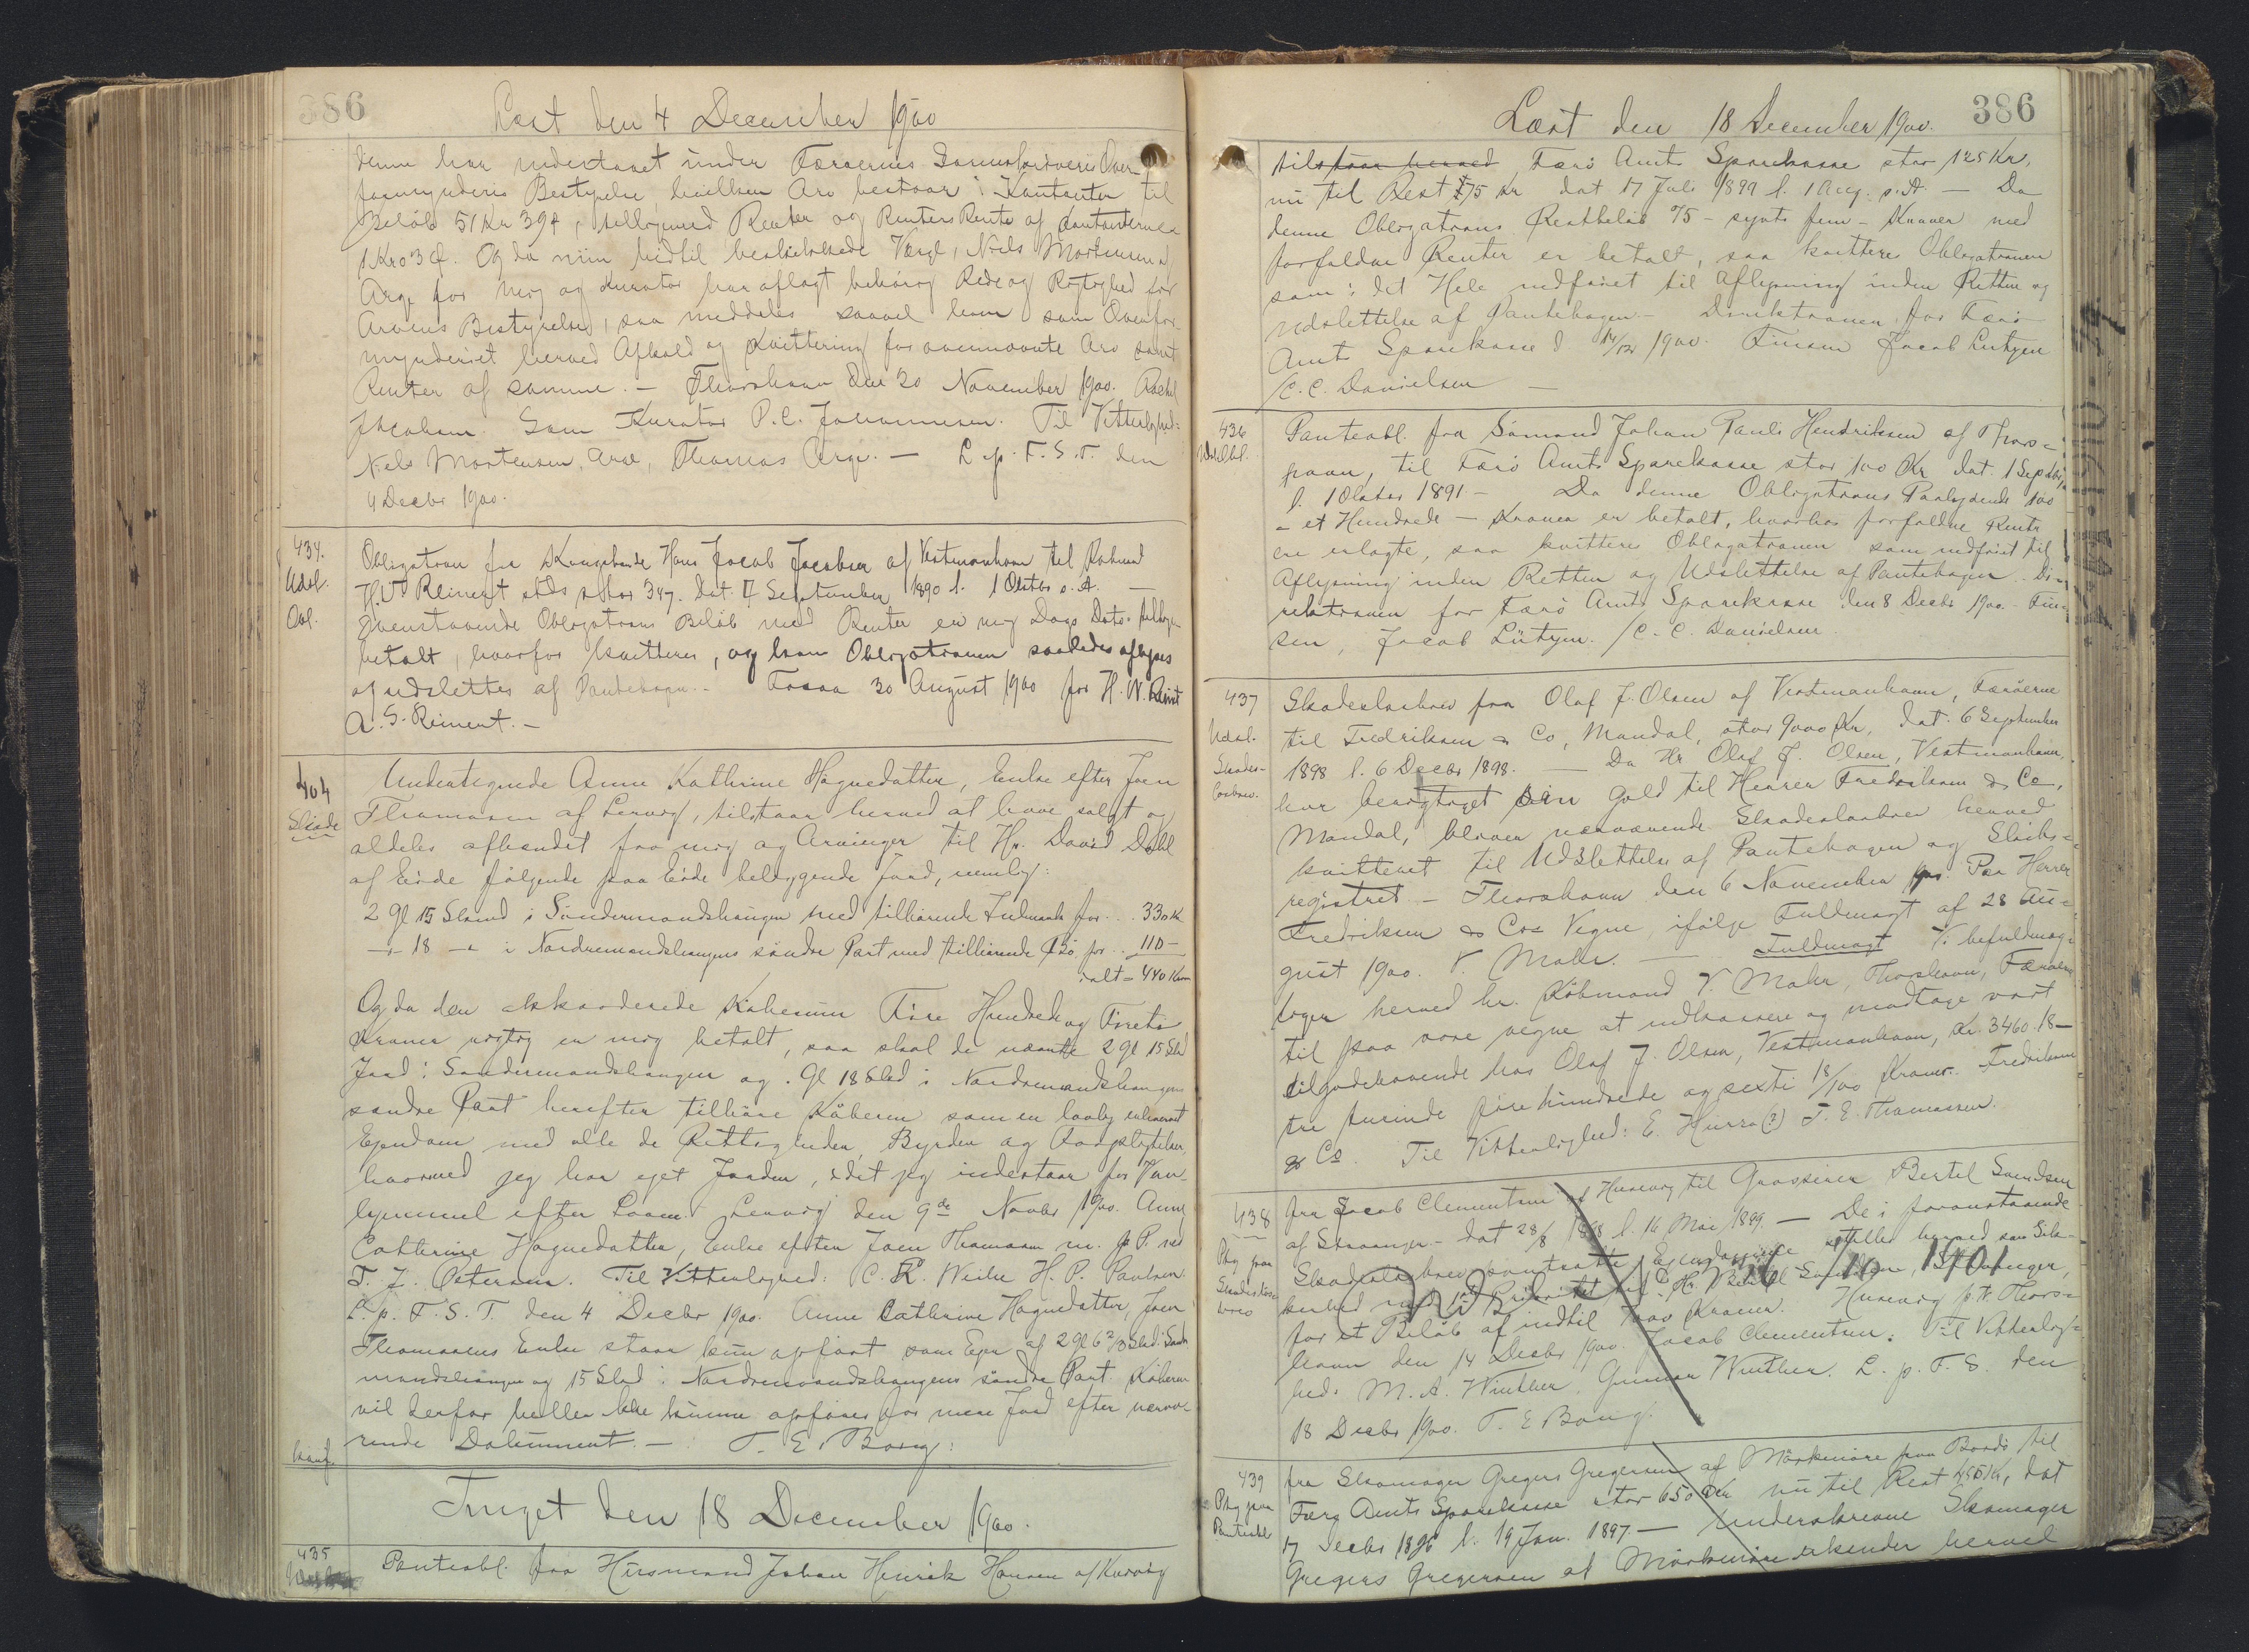 386
Læst den 4 December 1900
denne har indestaaet under Færøernes Overformynderis Bestyrelse, hvilken Arv bestaar i Kontanter til
Beløb 51 Kr 39 Ø, tilligemed Renter og Renters Rente af Kontanterne
1 Kr 03 Ø. Og da min hidtil beskikkede Værge, Niels Mortensen
Arge for mig og Kurator har aflagt behørig Rede og Rigtighed for
Arvens Bestyrelse, saa meddeles saavel ham som Overfor-
mynderiet herved Afkald og Kvittering for ovennævnte Arv samt
Renter af samme. — Thorshavn den 30 November 1900. Rachel
Jacobsen. Som Kurator P.C. Johannesen. Til Vitterlighed:
Niels Mortensen, Arge, Thomas Arge. — L. p. F. S. T. den
4 Decbr 1900.
434.
Udsl.
Obl.
Obligation fra Kongsbonde Hans Jacob Jacobsen af Vestmanhavn til
H. W. Reinert stor 347. dat. 17 September 1890 l. 1 Oktbr s. A. —
Ovenstaaende Obligations Beløb med Renter er mig Dags Dato
betalt, hvorfor kvitteres, og kan Obligationen saaledes aflyses
og udslettes af Pantebogen. — Fossaa 30 August 1900 for H. W. Reinert
A. S. Reinert. —
404
Skøde
Undertegnede Anne Kathrine Haguedatter, Enke efter Joen
Thomasen af Lervig, tilstaar herved at have solgt og
aldeles afhændet fra mig og Arvinger til Hr. David Dahl
af Eide følgende paa Eide beliggende Jord, nemlig:
2 Gl 15 Skind i Søndermandshaugen med tilhørende Indmark for .. 330 Kr
—„— 18 —„— i Nordremandshaugens søndre Part med tilhørende for .. 110 —
ialt = 440 Kr
Og da den akkorderede Købesum Fire Hundrede og Fireti
Kroner rigtig er mig betalt, saa skal de nævnte 2 gl 15 Skd
Jord i Søndermandshaugen og . Gl 18 Skd i Nordremandshaugens
søndre Part herefter tilhøre Køberen som en lovlig erhvervet
Ejendom med alle de Rettigheder, Byrder og Forpligtelser,
hvormed jeg har ejet Jorden, idet jeg indestaar for Van-
hjemmel efter Loven. Lervig den 9de Novbr 1900. Anne
Catherine Haguedatter, Enke efter Joen Thomasen m. f. P. ved
T. J. Petersen. Til Vitterlighed: C. K. Weihe H. P. Poulsen.
L. p. F. S. T. den 4 Decbr 1900. Anne Cathrine Haguedatter, Joen
Thomasens Enke staar kun opført som Ejer af 2 gl 6 2/3 Skd i Sønder
mandshaugen og 15 Skd i Nordremandshaugens søndre Part. Køberen
vil derfor heller ikke kunne opføres for mere Jord efter nærvæ-
rende Dokument. — T. E. Børg:
Konf.
Tinget den 18 December 1900.
435
Panteobl. fra Husmand Johan Henrik Hansen af Kvivig
386
Læst den 18 December 1900.
tilstaar herved Færø Amts Sparekasse stor 125 Kr,
nu til Rest 75 Kr dat 17 Juli 1899 l. 1 Aug. s. A. — Da
denne Obligations Restbeløb 75 - syvti fem - Kroner med
forfaldne Renter er betalt, saa kvitteres Obligationen
som i det Hele indfriet til Aflysning inden Retten og
Udslettelse af Pantebogen. — Direktionen for Færø
Amts Sparekasse d 14/12 1900. Finsen Jacob Lützen
/C. C. Danielsen —
436
Udsl Obl.
Panteobl. fra Sømand Johan Pauli Hendriksen af Thors-
havn, til Færø Amts Sparekasse stor 100 Kr dat. 1 Septbr
l. 1 Oktbr 1891 — Da denne Obligations Paalydende 100
- et Hundrede — Kroner er betalt, hvorhos forfaldne Rente
er erlagte, saa kvitteres Obligationen som indfriet til
Aflysning inden Retten og Udslettelse af Pantebogen. Di-
rektionen for Færø Amts Sparekasse den 8 Decbr 1900. Fin-
sen, Jacob Lützen. /C. C. Danielsen.
437
Udsl.
Skades-
løsbrev.
Skadesløsbrev fra Olaf J. Olsen af Vestmanhavn, Færøerne
til Fredriksen & Co, Mandal, stor 9000 Kr, dat. 6 September
1898 l. 6 Decbr 1898. — Da Hr Olaf J. Olsen, Vestmanhavn,
har berigtiget sin Gæld til Herrer Fredriksen & Co,
Mandal, bliver nærværende Skadesløsbrev herved
kvitteret til Udslettelse af Pantebogen og Skibs-
registret. — Thorshavn den 6 November 1900. Paa Herrer
Fredriksen & Cos Vegne ifølge Fuldmagt af 28 Au-
gust 1900. V. Mohr. — Fuldmagt Vi befuldmæg-
tiger herved hr. Købmand V. Mohr, Thorshavn, Færøerne
til paa vore vegne at indkassere og modtage vort
tilgodehavende hos Olaf J. Olsen, Vestmanhavn, Kr. 3460.18 —
tre tusinde fire hundrede og sexti 18/100 Kroner. Fredriksen
& Co. Til Vitterlighed: E. Hurra(?) T. E. Thomassen.
438
Pkg paa
Skadesløs-
brev
fra Jacob Clementsen af Husevig til Grosserer Bertel Svendsen
af Stavanger - dat 28/8 1898 l. 16 Mai 1899. — De i foranstaaende
Skadesløsbrev pantsatte Ejendomme stilles herved som Sik-
kerhed med 1st Prioritet til Hr. Bertel Svendsen, Stavanger,
for et Beløb af indtil 7000 Kroner. Husevig p. t. Thors-
havn den 14 Decbr 1900. Jacob Clementsen. Til Vitterlig-
hed: M. A. Winther. Gunnar Winther. L. p. F. S. den
18 Decbr 1900. T. E. Børg.
Ud 16/10 1901
439
Pkg paa
Panteobl
fra Skomager Gregers Gregersen af Mørkenøre paa Bordø til
Færø Amts Sparekasse stor 650 Kr nu til Rest 455 Kr, dat
17 Decbr 1896 l. 19 Jan. 1897. — Underskrevne Skomager
Gregers Gregersen af Mørkenøre erkender herved